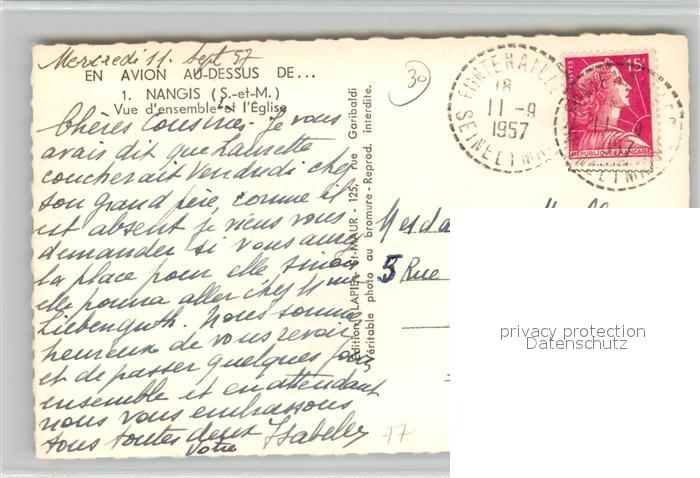 Mercredi 11. Sept 57
EN AVION AU-DESSUS DE...
1. NANGIS (S.-et-M.)
Vue d'ensemble et l'Église
Chères Cousines, Je vous
avais dit que
coucherait Vendredi chez
son grand père, comme il
est absent je viens vous
demander si vous aurez
la place pour elle sinon
elle pourra aller chez
Liebenguth. Nous sommes
heureux de vous revoir
et de passer quelques jours
ensemble et en attendant
nous vous embrassons
tous toutes deux
Votre Isabelle
77
Edition LAPIE, St-MAUR - 125, rue Garibaldi
Véritable photo au bromure - Reprod. interdite.
30
FONTENAILLES
18
11 -9
1957
SEINE ET M
15F
POSTES
REPUBLIQUE FRANÇAISE
11 -9
Mesda
5 Rue
privacy protection
Datenschutz